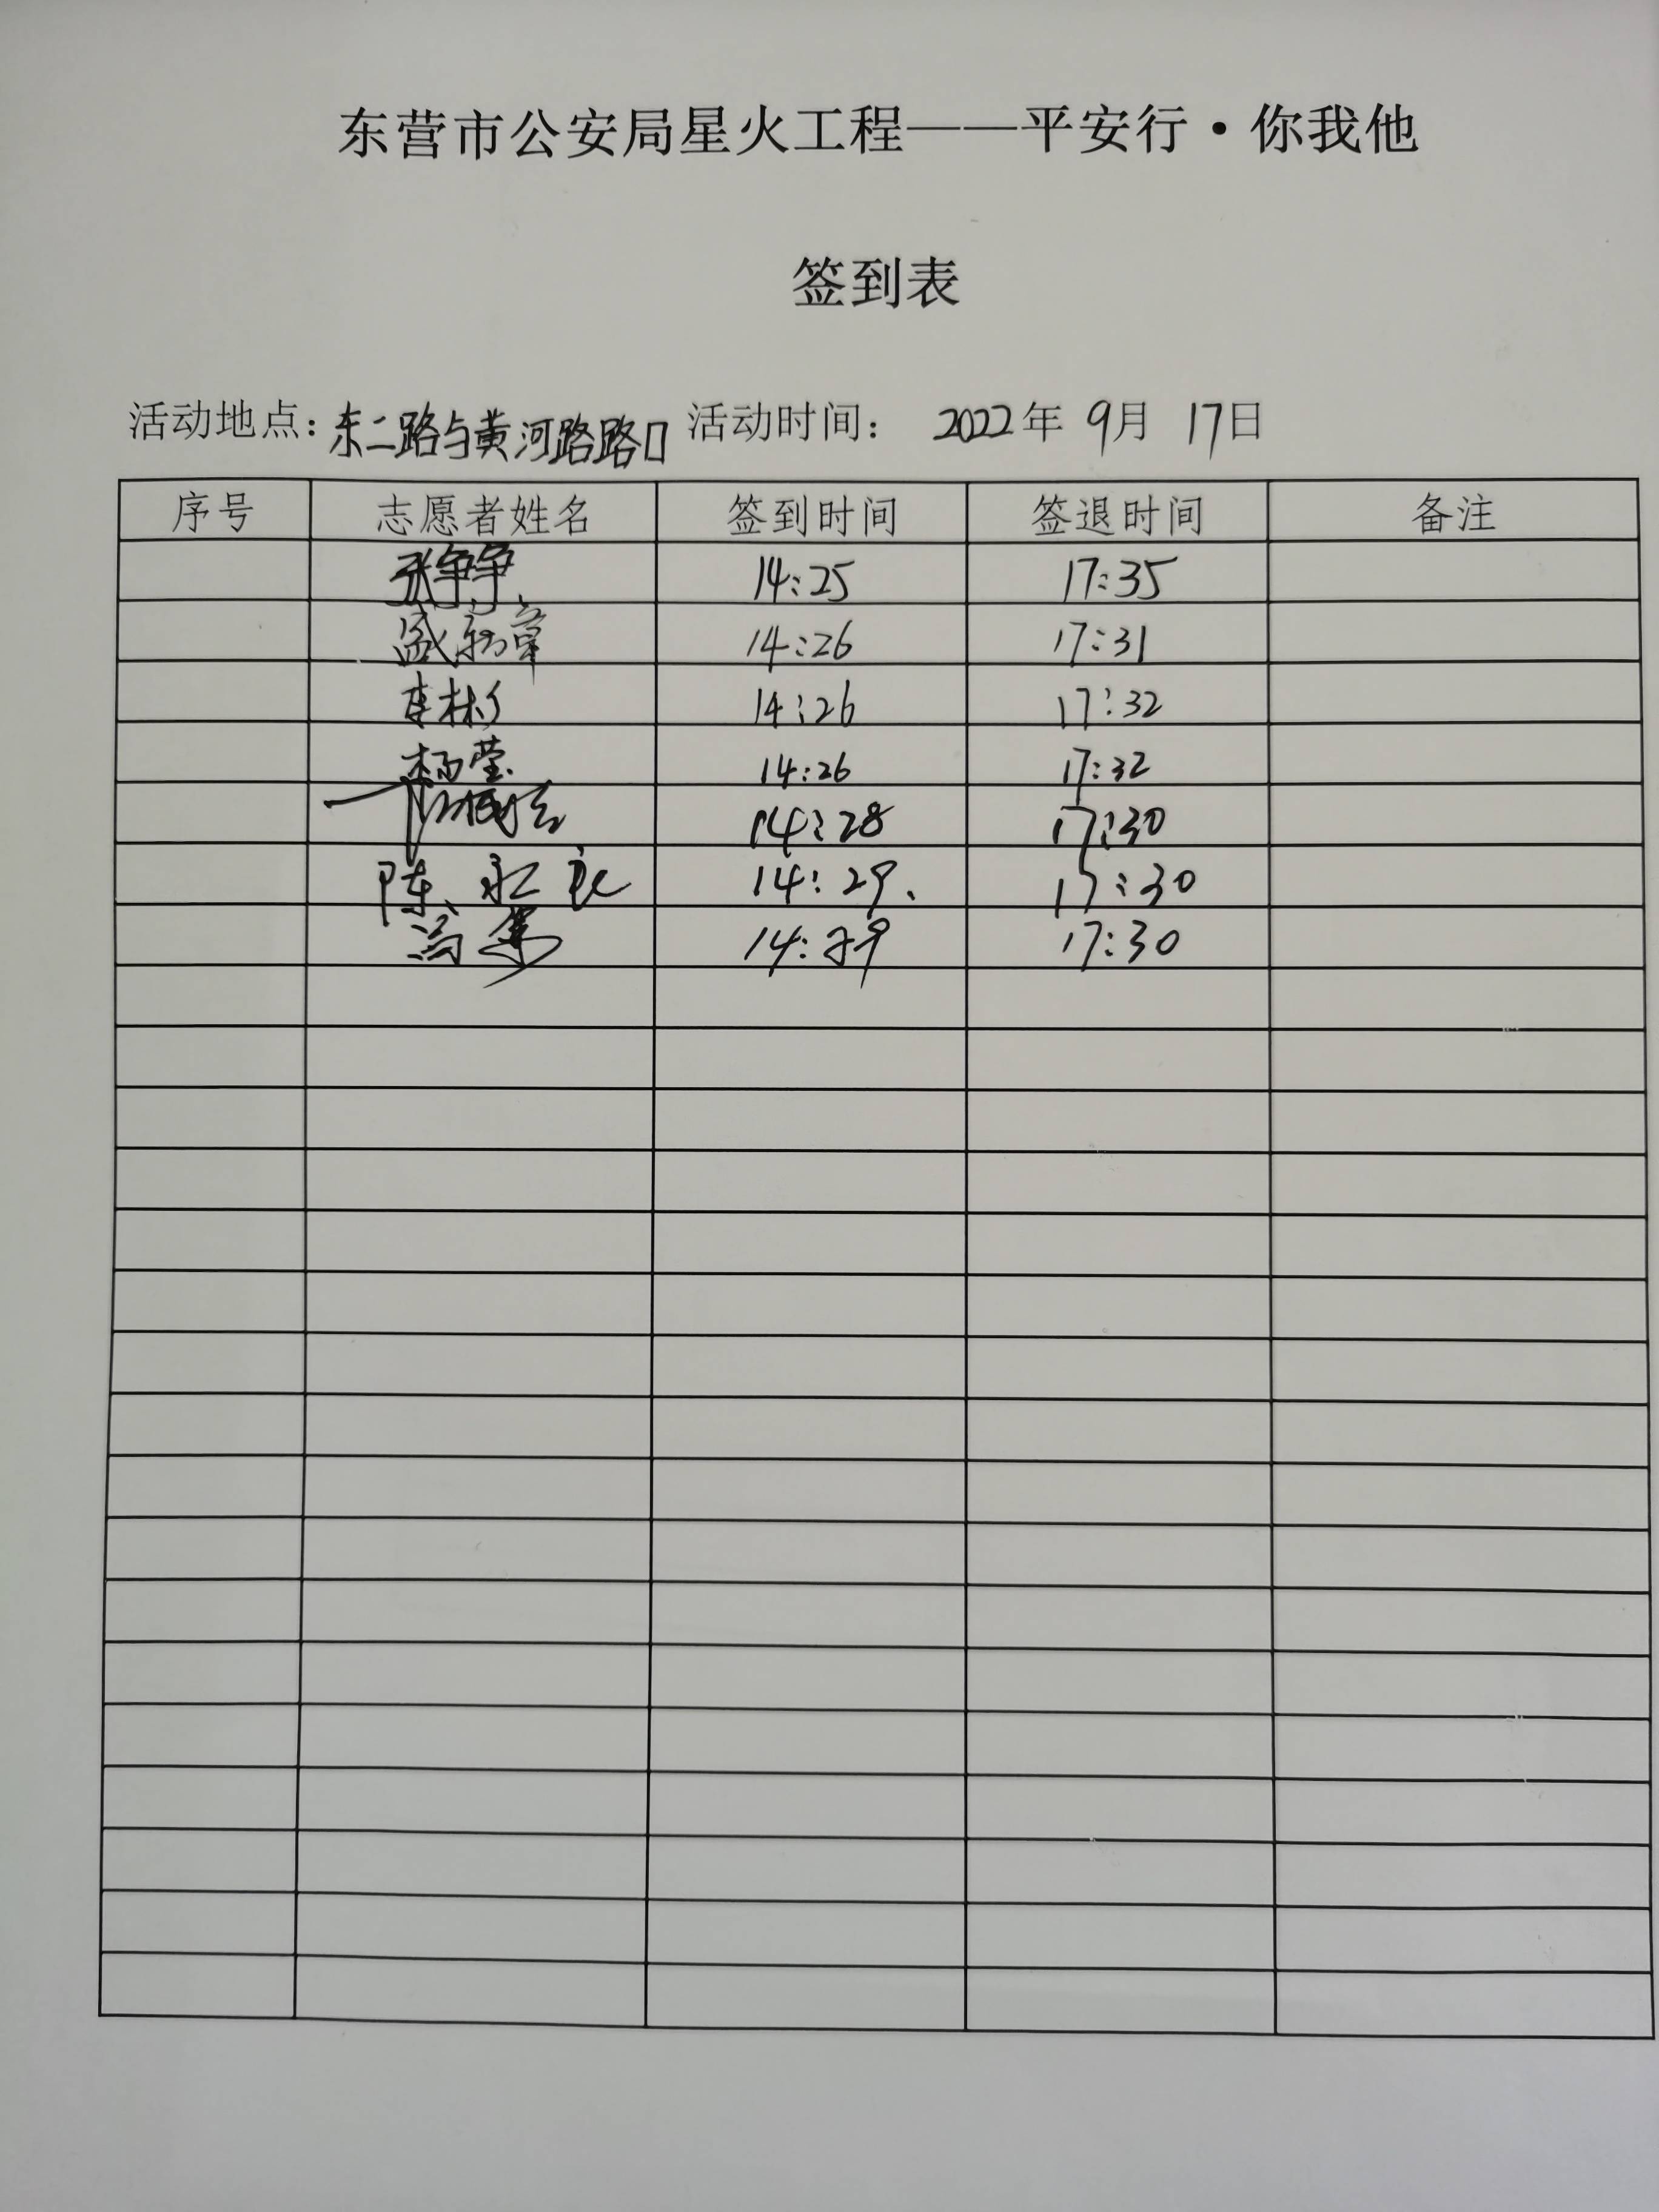 东营市公安局星火工程——平安行·你我他
签到表
活动地点：东二路与黄河路路口 活动时间： 2022年 9月 17日
序号 志愿者姓名 签到时间 签退时间 备注
张争争 14:25 17:35
14:26 17:31
李彬 14:26 17:32
杨莹 14:26 17:32
14:28 17:30
陈永良 14:29. 17:30
14:29 17:30